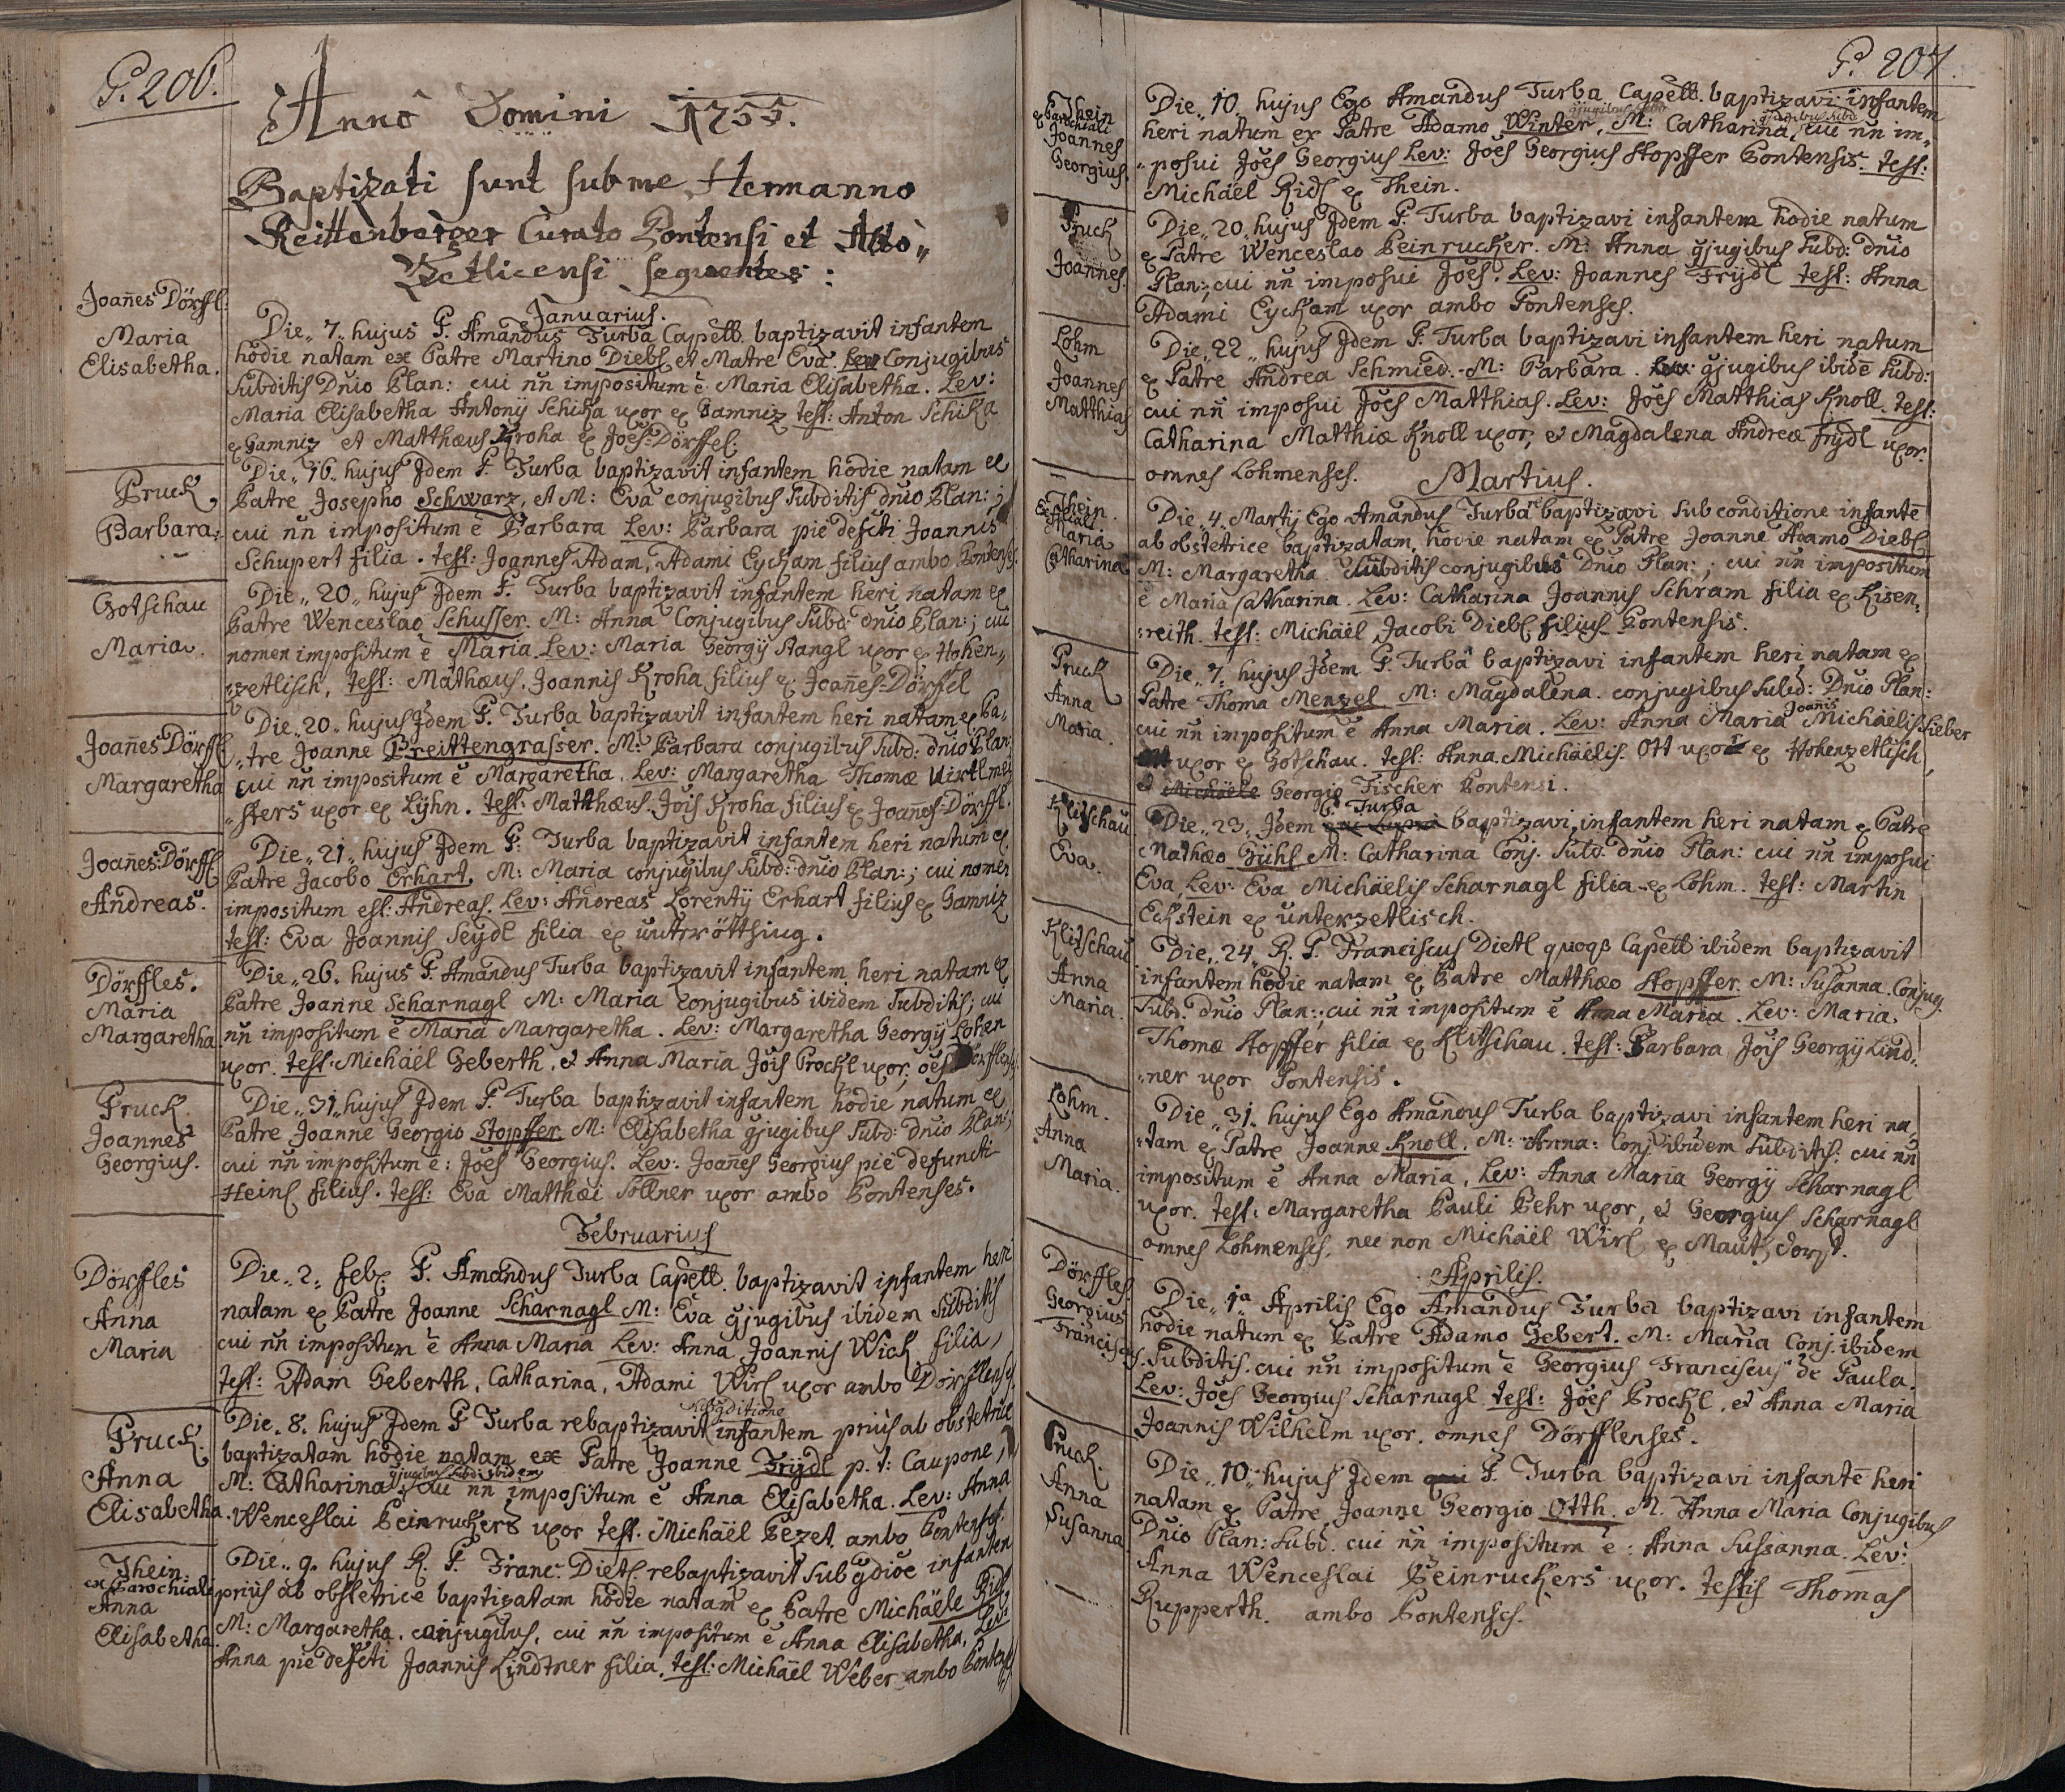 P. 206.
Anno Domini 1755.
Baptizati sunt sub me Hermanno
Reittenberger Curato Pontensi et Alto„
Zetlicensi sequentes:
Januarius.
Joañes Dörffl:
Maria
Elisabetha.
Die„ 7„ hujus P. Amandus Turba Capell. baptizavit infantem
hodie natam ex Patre Martino Diebl et Matre Eva. Conjugibus
subditis Dnio Plan: cui nn impositum ē Maria Elisabetha. Lev:
Maria Elisabetha Antonij Schika uxor ex Gamniz test: Anton Schika
ex Gamniz et Matthæus Kroha ex Joēs-Dörffel:
Pruck
Barbara.
Die„ 16„ hujus Jdem P. Turba baptizavit infantem hodie natam ex
Patre Josepho Schwarz, et M: Eva conjugibus subditis dnio Plan: ;
cui nn impositum ē Barbara Lev: Barbara pie defcti Joannis
Schupert filia. test: Joannes Adam, Adami Eyckam filius ambo Pontenses.
Gotschau
Maria.
Die„ 20„ hujus Jdem P. Turba baptizavit infantem heri natam ex
Patre Wenceslao Schusser. M: Anna Conjugibus subd: dnio Plan: ; cui
nomen impositum ē Maria. Lev: Maria Georgij Stangl uxor ex Hohen„
zetlisch, test: Mathæus, Joannis Kroha filius ex Joañes-Dörffel
Joañes Dörffl
Margaretha
Die„ 20„ hujus Jdem P. Turba baptizavit infantem heri natam ex Pa„
„tre Joanne Breittengrasser. M: Barbara conjugibus subd: dnio Plan:
cui nn impositum ē Margaretha. Lev: Margaretha Thomæ Wirtlmei
„sters uxor ex Lijhn. test: Matthæus Jois Kroha filius ex Joañes-Dörffl.
Joañes-Dörffl
Andreas.
Die„ 21„ hujus Jdem P. Turba baptizavit infantem heri natum ex
Patre Jacobo Erhart. M: Maria conjugibus subd: dnio Plan: ; cui nomen
impositum est: Andreas. Lev: Andreas Lorentij Erhart filius ex Gamniz
test: Eva Joannis Seydl filia ex
Dörffles.
Maria
Margaretha
Die„ 26„ hujus P. Amandus Turba baptizavit infantem heri natam ex
Patre Joanne Scharnagl M: Maria conjugibus ibidem subditis; cui
nn impositum ē Maria Margaretha. Lev: Margaretha Georgij Lohen
uxor. test: Michäel Geberth, et Anna Maria Jois Prockl uxor; oēs Dörfflenses.
Pruck.
Joannes
Georgius.
Die„ 31„ hujus Jdem P. Turba baptizavit infantem hodie natum ex
Patre Joanne Georgio Stopffer M: Elisabetha gjugibus subd: dnio Plan;
cui nn impositum ē: Joēs Georgius. Lev: Joañes Georgius pie defuncti
Heinl filius. test: Eva Matthæi Sollner uxor ambo Pontenses.
Februarius
Dörffles
Anna
Maria
Die„ 2„ feb P. Amandus Turba Capell. baptizavit infantem heri
natam ex Patre Joanne Scharnagl M: Eva gjugibus ibidem subditis
cui nn impositum ē Anna Maria Lev: Anna Joannis Wick filia,
test: Adam Geberth, Catharina, Adami Wirl uxor ambo Dörfflenses.
Pruck.
Anna
Elisabetha.
Die„ 8„ hujus Jdem P Turba rebaptizavit sub gditione infantem prius ab obstetrice
baptizatam hodie natam ex Patre Joanne Frijdl p. t: Caupone,
M: Catharina gjugibus subd: ibidem, cui nn impositum ē Anna Elisabetha. Lev: Anna
Wenceslai Beinruckers uxor test. Michäel Bezet. ambo Pontenses.
Thein:
ex Parochiali
Anna
Elisabetha.
Die„ 9„ hujus R. P. Franc: Dietl rebaptizavit sub gdioe infantem
prius ab obstetrice baptizatam hodie natam ex Patre Michäele Ridl
M: Margaretha. conjugibus, cui nn impositum ē Anna Elisabetha. Lev:
Anna pie defcti Joannis Lindtner filia. test: Michäel Weber ambo Pontenses
P. 207.
Thein
ex Parochiali
Joannes
Georgius.
Die„ 10„ hujus Ego Amandus Turba Capell. baptizavi infantem
heri natum ex Patre Adamo Winter, M: Catharina, gjugibus subd cui nn im„
„posui Joēs Georgius Lev: Joēs Georgius Stopffer Pontensis. test:
Michäel Ridl ex Thein.
Pruck
Joannes.
Die„ 20„ hujus Jdem P. Turba baptizavi infantem hodie natum
ex Patre Wenceslao Beinrucker. M: Anna gjugibus subd: dnio
Plan:, cui nn imposui Joēs. Lev: Joannes Frijdl test: Anna
Adami Eyckam uxor ambo Pontenses.
Lohm
Joannes
Matthias
Die„ 22„ hujus Jdem P. Turba baptizavi infantem heri natum
ex Patre Andrea Schmied. M: Barbara. gjugibus ibidē subd:
cui nn imposui Joēs Matthias. Lev: Joēs Matthias Knoll. test:
Catharina Matthiæ Knoll uxor, et Magdalena Andreæ Frijdl uxor.
omnes Lohmenses.
Martius.
Thein.
Maria
Catharina
Die„ 4„ Martij Ego Amandus Turba baptizavi sub conditione infantē
ab obstetrice baptizatam, hodie natam ex Patre Joanne Adamo Diebl
M: Margaretha. subditis conjugibus Dnio Plan: ; cui nn impositum
ē Maria Catharina. Lev: Catharina Joannis Schram filia ex Kisen„
„reith. test: Michäel Jacobi Diebl filius Pontensis.
Pruck
Anna
Maria.
Die„ 7„ hujus Jdem P. Turba baptizavi infantem heri natam ex
Patre Thoma Menzel M: Magdalena. conjugibus subd: Dnio Plan:
cui nn impositum ē Anna Maria. Lev: Anna Maria Joanis Michäelis Lieber
uxor ex Gotschau. test: Anna Michäelis Ott uxor ex Hohenzetlisch,
et Michäele Georgio Fischer Pontensi.
Klitschau
Eva.
Die„ 23„ Jdem P. Turba baptizavi infantem heri natam ex Patre
Mathæo Gühl M: Catharina Conj. subd: dnio Plan: cui nn imposui
Eva, Lev: Eva Michäelis Scharnagl filia ex Lohm. test: Martin
Eckstein ex Unterzetlisch.
Klitschau
Anna
Maria.
Die„ 24„ R. P. Franciscus Dietl quoqß Capell ibidem baptizavit
infantem hodie natam ex Patre Matthæo Stopffer M: Susanna. Conjug.
subd. dnio Plan:, cui nn impositum ē Anna Maria. Lev: Maria
Thomæ Stopffer filia ex Klitschau. test: Barbara Jois Georgij Lind„
„ner uxor Pontensis.
Lohm.
Anna
Maria.
Die„ 31„ hujus Ego Amandus Turba baptizavi infantem heri na„
„tam ex Patre Joanne Knoll. M: Anna: Conj ibidem subditis: cui nn
impositum ē Anna Maria, Lev: Anna Maria Georgij Scharnagl
uxor. test: Margaretha Pauli Behr uxor, et Georgius Scharnagl
omnes Lohmenses, nec non Michäel Wirl ex Mautdorf.
Aprilis.
Dörffles
Georgius
Franciscus.
Die„ 1ª Aprilis Ego Amandus Turba baptizavi infantem
hodie natum ex Patre Adamo Gebert. M: Maria Conj. ibidem
subditis. cui nn impositum ē Georgius Franciscus de Paula.
Lev: Joēs Georgius Scharnagl test: Joēs Prockl, et Anna Maria
Joannis Wilhelm uxor. omnes Dörfflenses.
Pruck.
Anna
Susanna
Die„ 10„ hujus Jdem qui P. Turba baptizavi infantē heri
natam ex Patre Joanne Georgio Otth. M. Anna Maria Conjugibus
Dnio Plan: subd. cui nn impositum ē: Anna Sussanna. Lev:
Anna Wenceslai Beinruckers uxor. testis Thomas
Rupperth. ambo Pontenses.